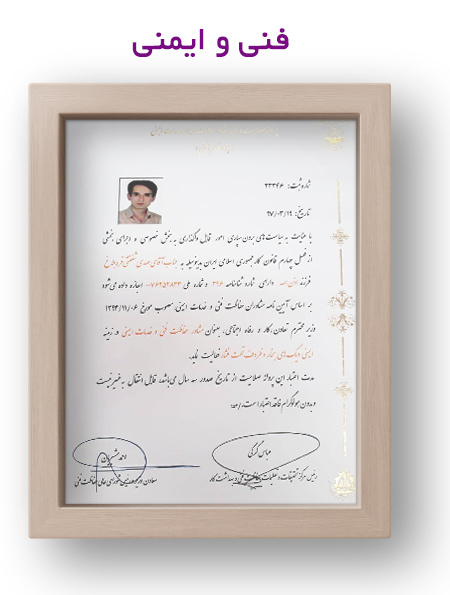 فنی و ایمنی
شماره ثبت: ۲۳۳۴۶
تاریخ: ۹۷/۰۳/۱۹
با عنایت به سیاست‌های برون‌سپاری امور قابل واگذاری به بخش خصوصی و اجرای بخشی
از فصل چهارم قانون کار جمهوری اسلامی ایران بدینوسیله به جناب آقای مهدی
فرزند دارای شماره شناسنامه ۳۹۶ و شماره ملی اجازه داده می‌شود
بر اساس آیین نامه مشاوران حفاظت فنی و خدمات ایمنی مصوب مورخ ۱۳۹۴/۱۱/۰۶
وزیر محترم تعاون، کار و رفاه اجتماعی، بعنوان مشاور حفاظت فنی و خدمات ایمنی در زمینه
ایمنی دیگ‌های بخار و ظروف تحت فشار فعالیت نماید.
مدت اعتبار این پروانه صلاحیت از تاریخ صدور سه سال می‌باشد، قابل انتقال به غیر نیست
و بدون هولوگرام فاقد اعتبار است.
عباس
احمد
رئیس مرکز تحقیقات و تعلیمات حفاظت فنی و بهداشت کار
معاون و دبیر شورای عالی حفاظت فنی